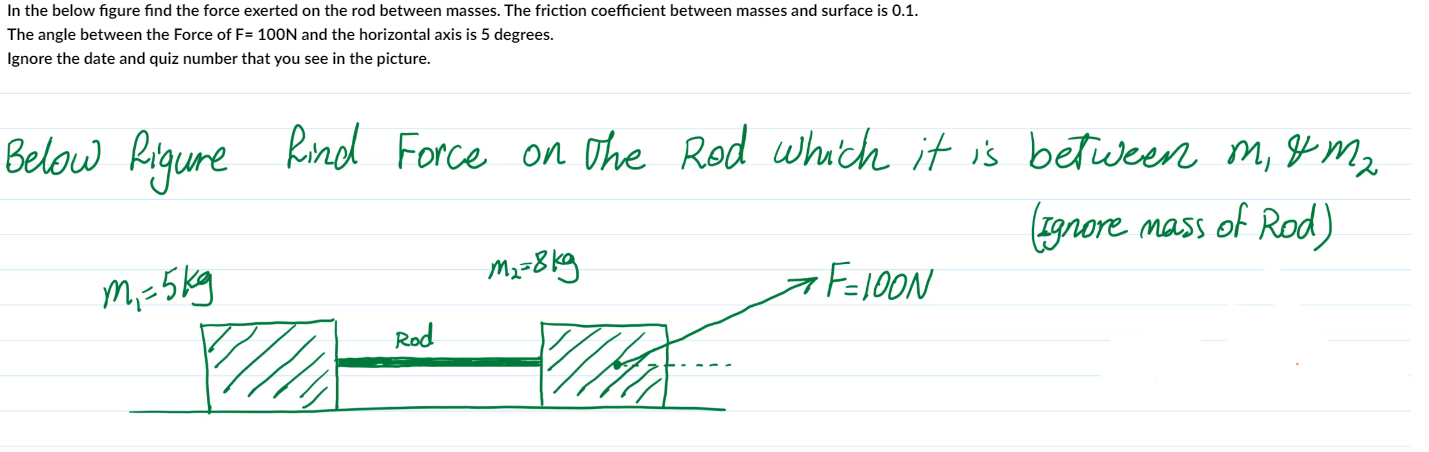 In the below figure find the force exerted on the rod between masses. The friction coefficient between masses and surface is 0.1.
The angle between the Force of F= 100N and the horizontal axis is 5 degrees.
Ignore the date and quiz number that you see in the picture.
Below figure find Force on the Rod which it is between m₁ & m₂
(Ignore mass of Rod)
m₁=5kg
m₂=8kg
F=100N
Rod